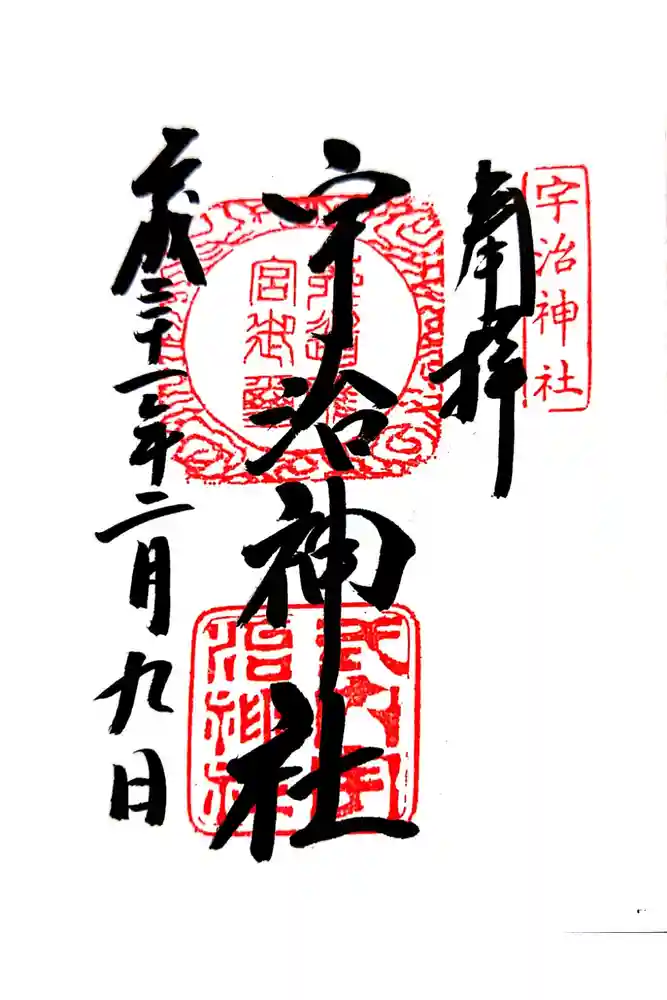 宇治神社
奉拝
宇治神社
宮御璽
式内宇
治神社
平成三十一年二月九日